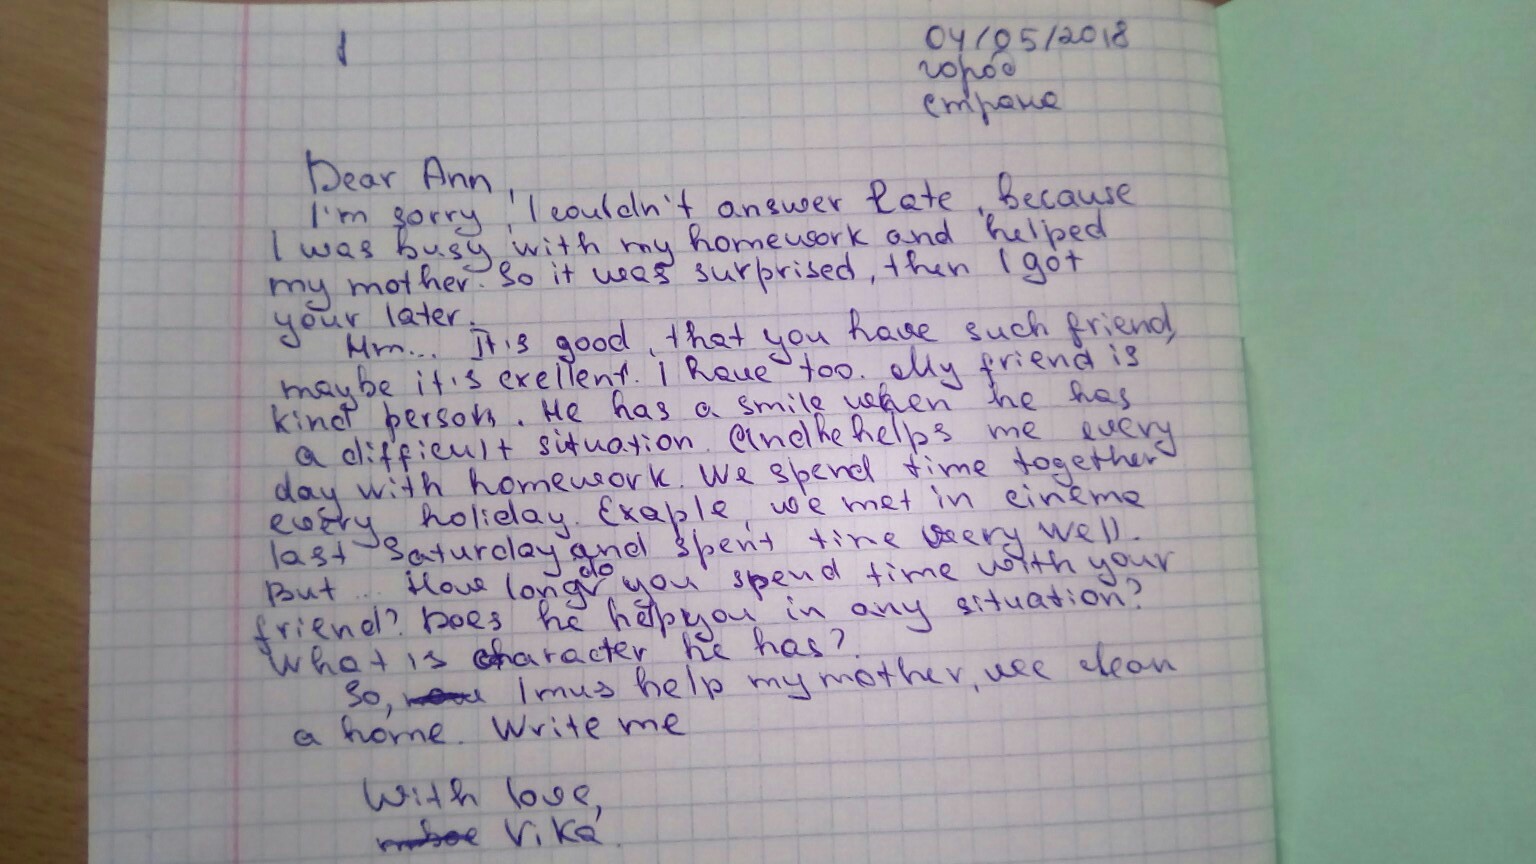 1
04/05/2018
город
страна
Dear Ann,
I'm sorry, I couldn't answer late, because
I was busy with my homework and helped
my mother. So it was surprised, then I got
your later.
Hm... It's good, that you have such friend,
maybe it's exellent. I have too. My friend is
kind person. He has a smile when he has
a difficult situation. And he helps me every
day with homework. We spend time together
every holiday. Exaple, we met in cinema
last Saturday and spent time very well.
But... How long do you spend time with your
friend? Does he help you in any situation?
What is character he has?
So, I mus help my mother, we clean
a home. Write me
With love,
Vika.